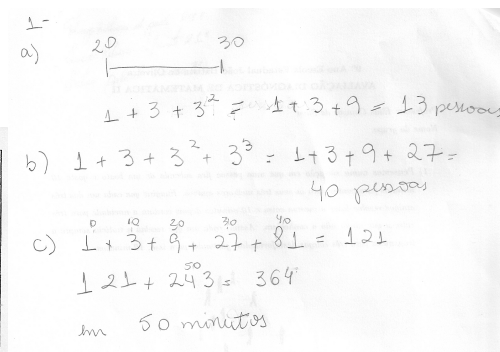 1-
a) 20 30
1 + 3 + 3² = 1+3+9 = 13 pessoas
b) 1 + 3 + 3² + 3³ = 1+3+9+27=
40 pessoas
0 10 20 30 40
c) 1 + 3 + 9 + 27 + 81 = 121
50
121 + 243 = 364
em 50 minutos